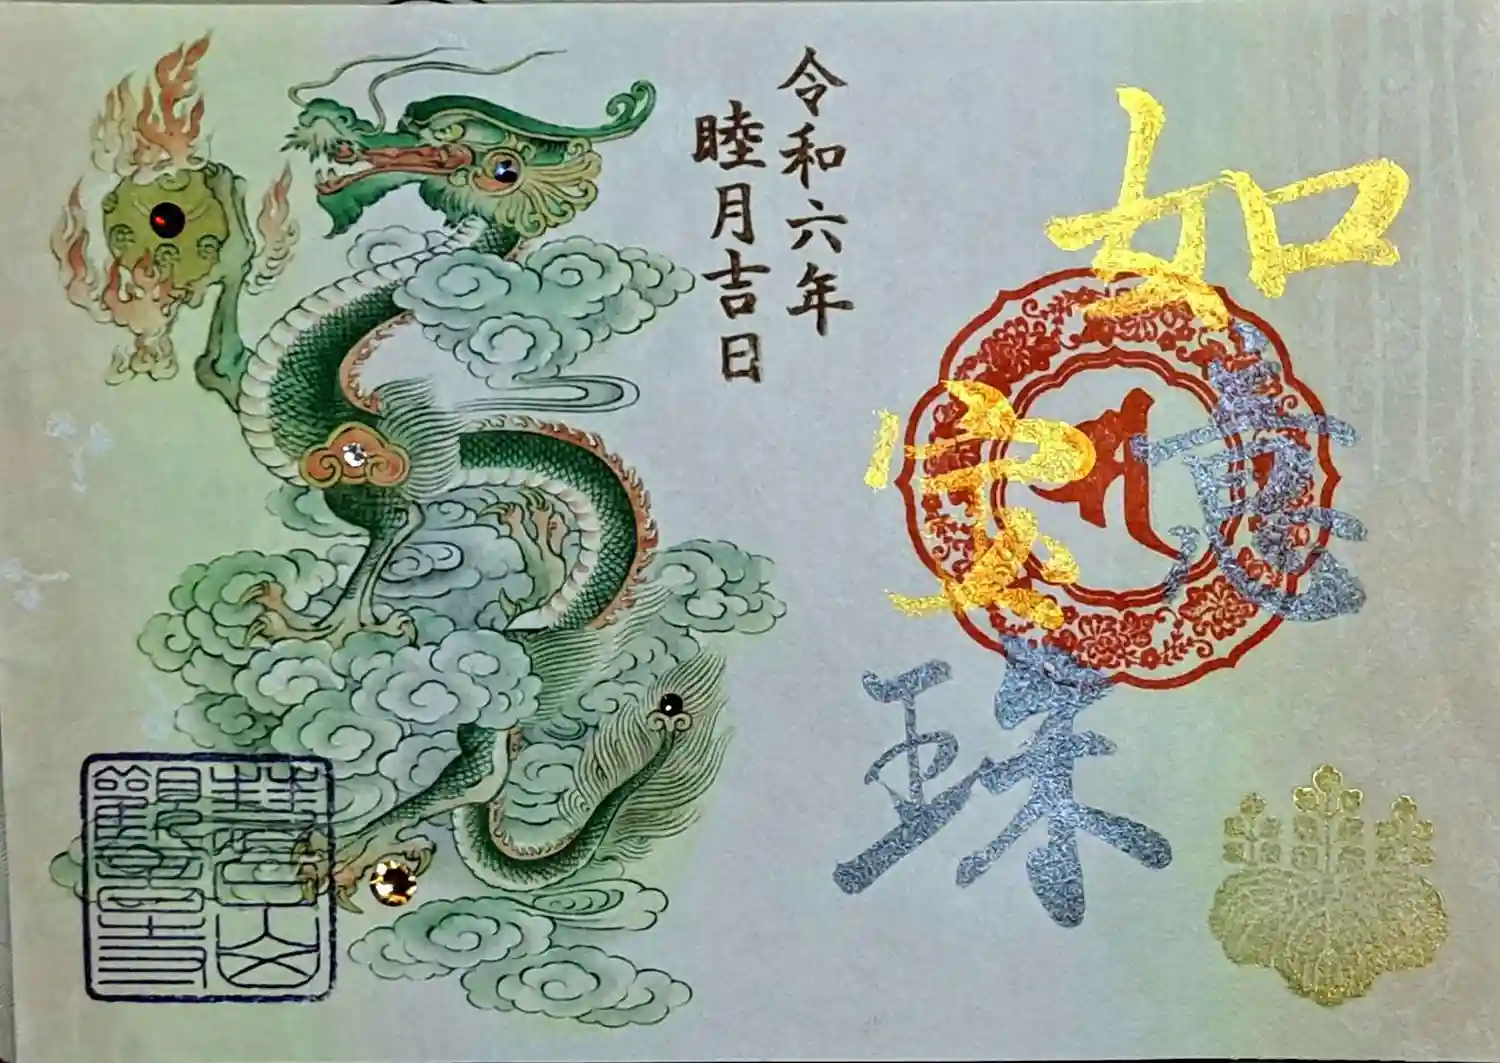 如意
宝珠
令和六年
睦月吉日